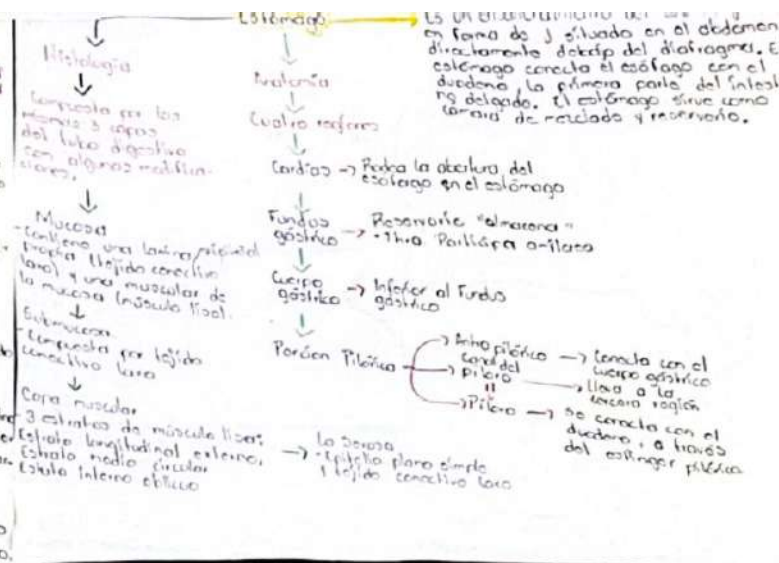 Estómago
en forma de J situado en el abdomen
directamente debajo del diafragma. E
estómago conecta el esófago con el
duodeno, la primera parte del intest
no delgado. El estómago sirve como
cámara de mezclado y reservorio.
Histología
Compuesta por las
mismas capas
del tubo digestivo
con algunas modifica-
ciones.
Mucosa
- Contiene una lámina
propia (tejido conectivo
laxo) y una muscular de
la mucosa (músculo liso).
Submucosa
- Compuesta por tejido
conectivo laxo
Capa muscular
- 3 estratos de músculo liso:
Estrato longitudinal externo,
Estrato medio circular
Estrato interno oblicuo
La Serosa
- Epitelio plano simple
y tejido conectivo laxo
Anatomía
Cuatro regiones
Cardias → Rodea la abertura del
esófago en el estómago
Fundus
gástrico → Reservorio "almacena"
Cuerpo
gástrico → Inferior al Fundus
gástrico
Porción Pilórica
Antro pilórico → Conecta con el
cuerpo gástrico
Canal del
píloro → lleva a la
tercera región
Píloro → Se conecta con el
duodeno, a través
del esfinger pilórico